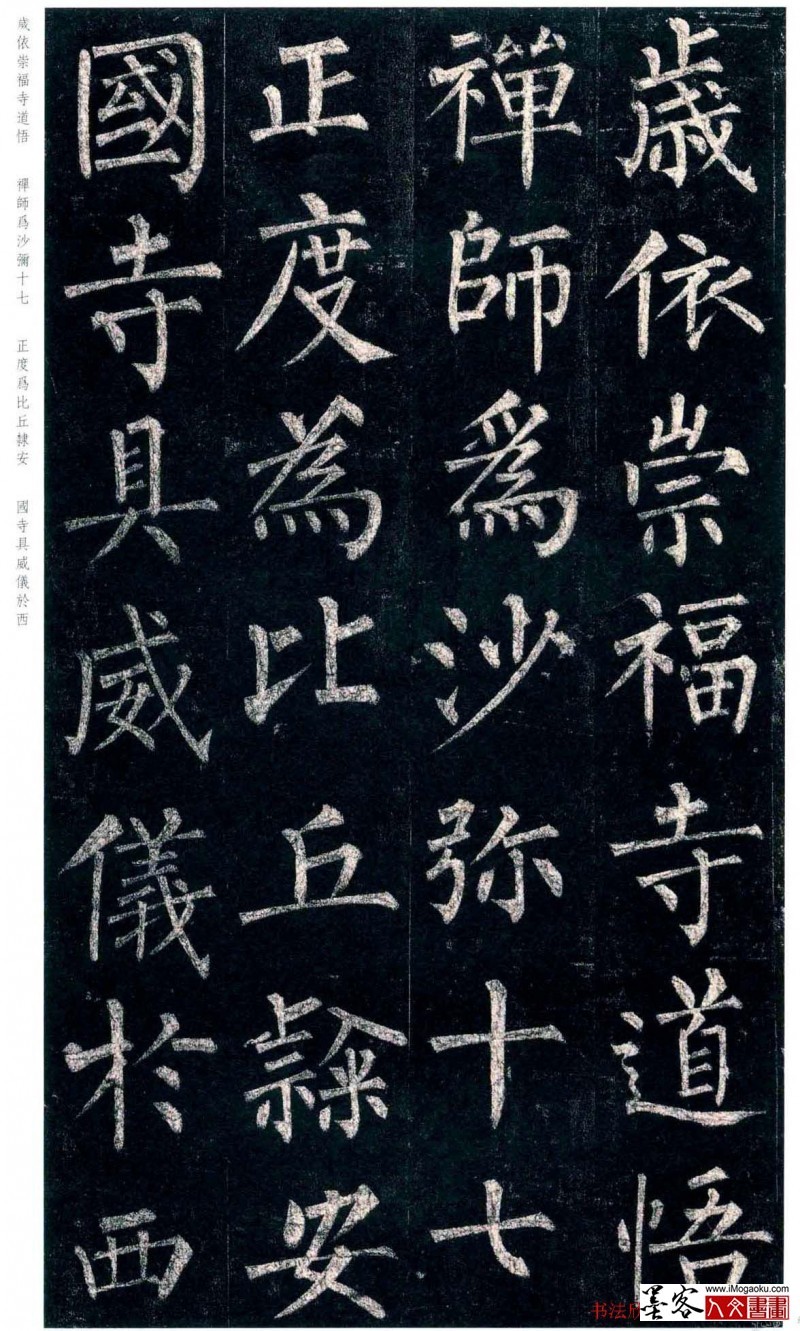 歲依崇福寺道悟
禪師爲沙弥十七
正度為比丘隸安
國寺具威儀於西
歲依崇福寺道悟　禪師爲沙彌十七　正度爲比丘隸安　國寺具威儀於西
www.iMogaoku.com
墨客
书法欣